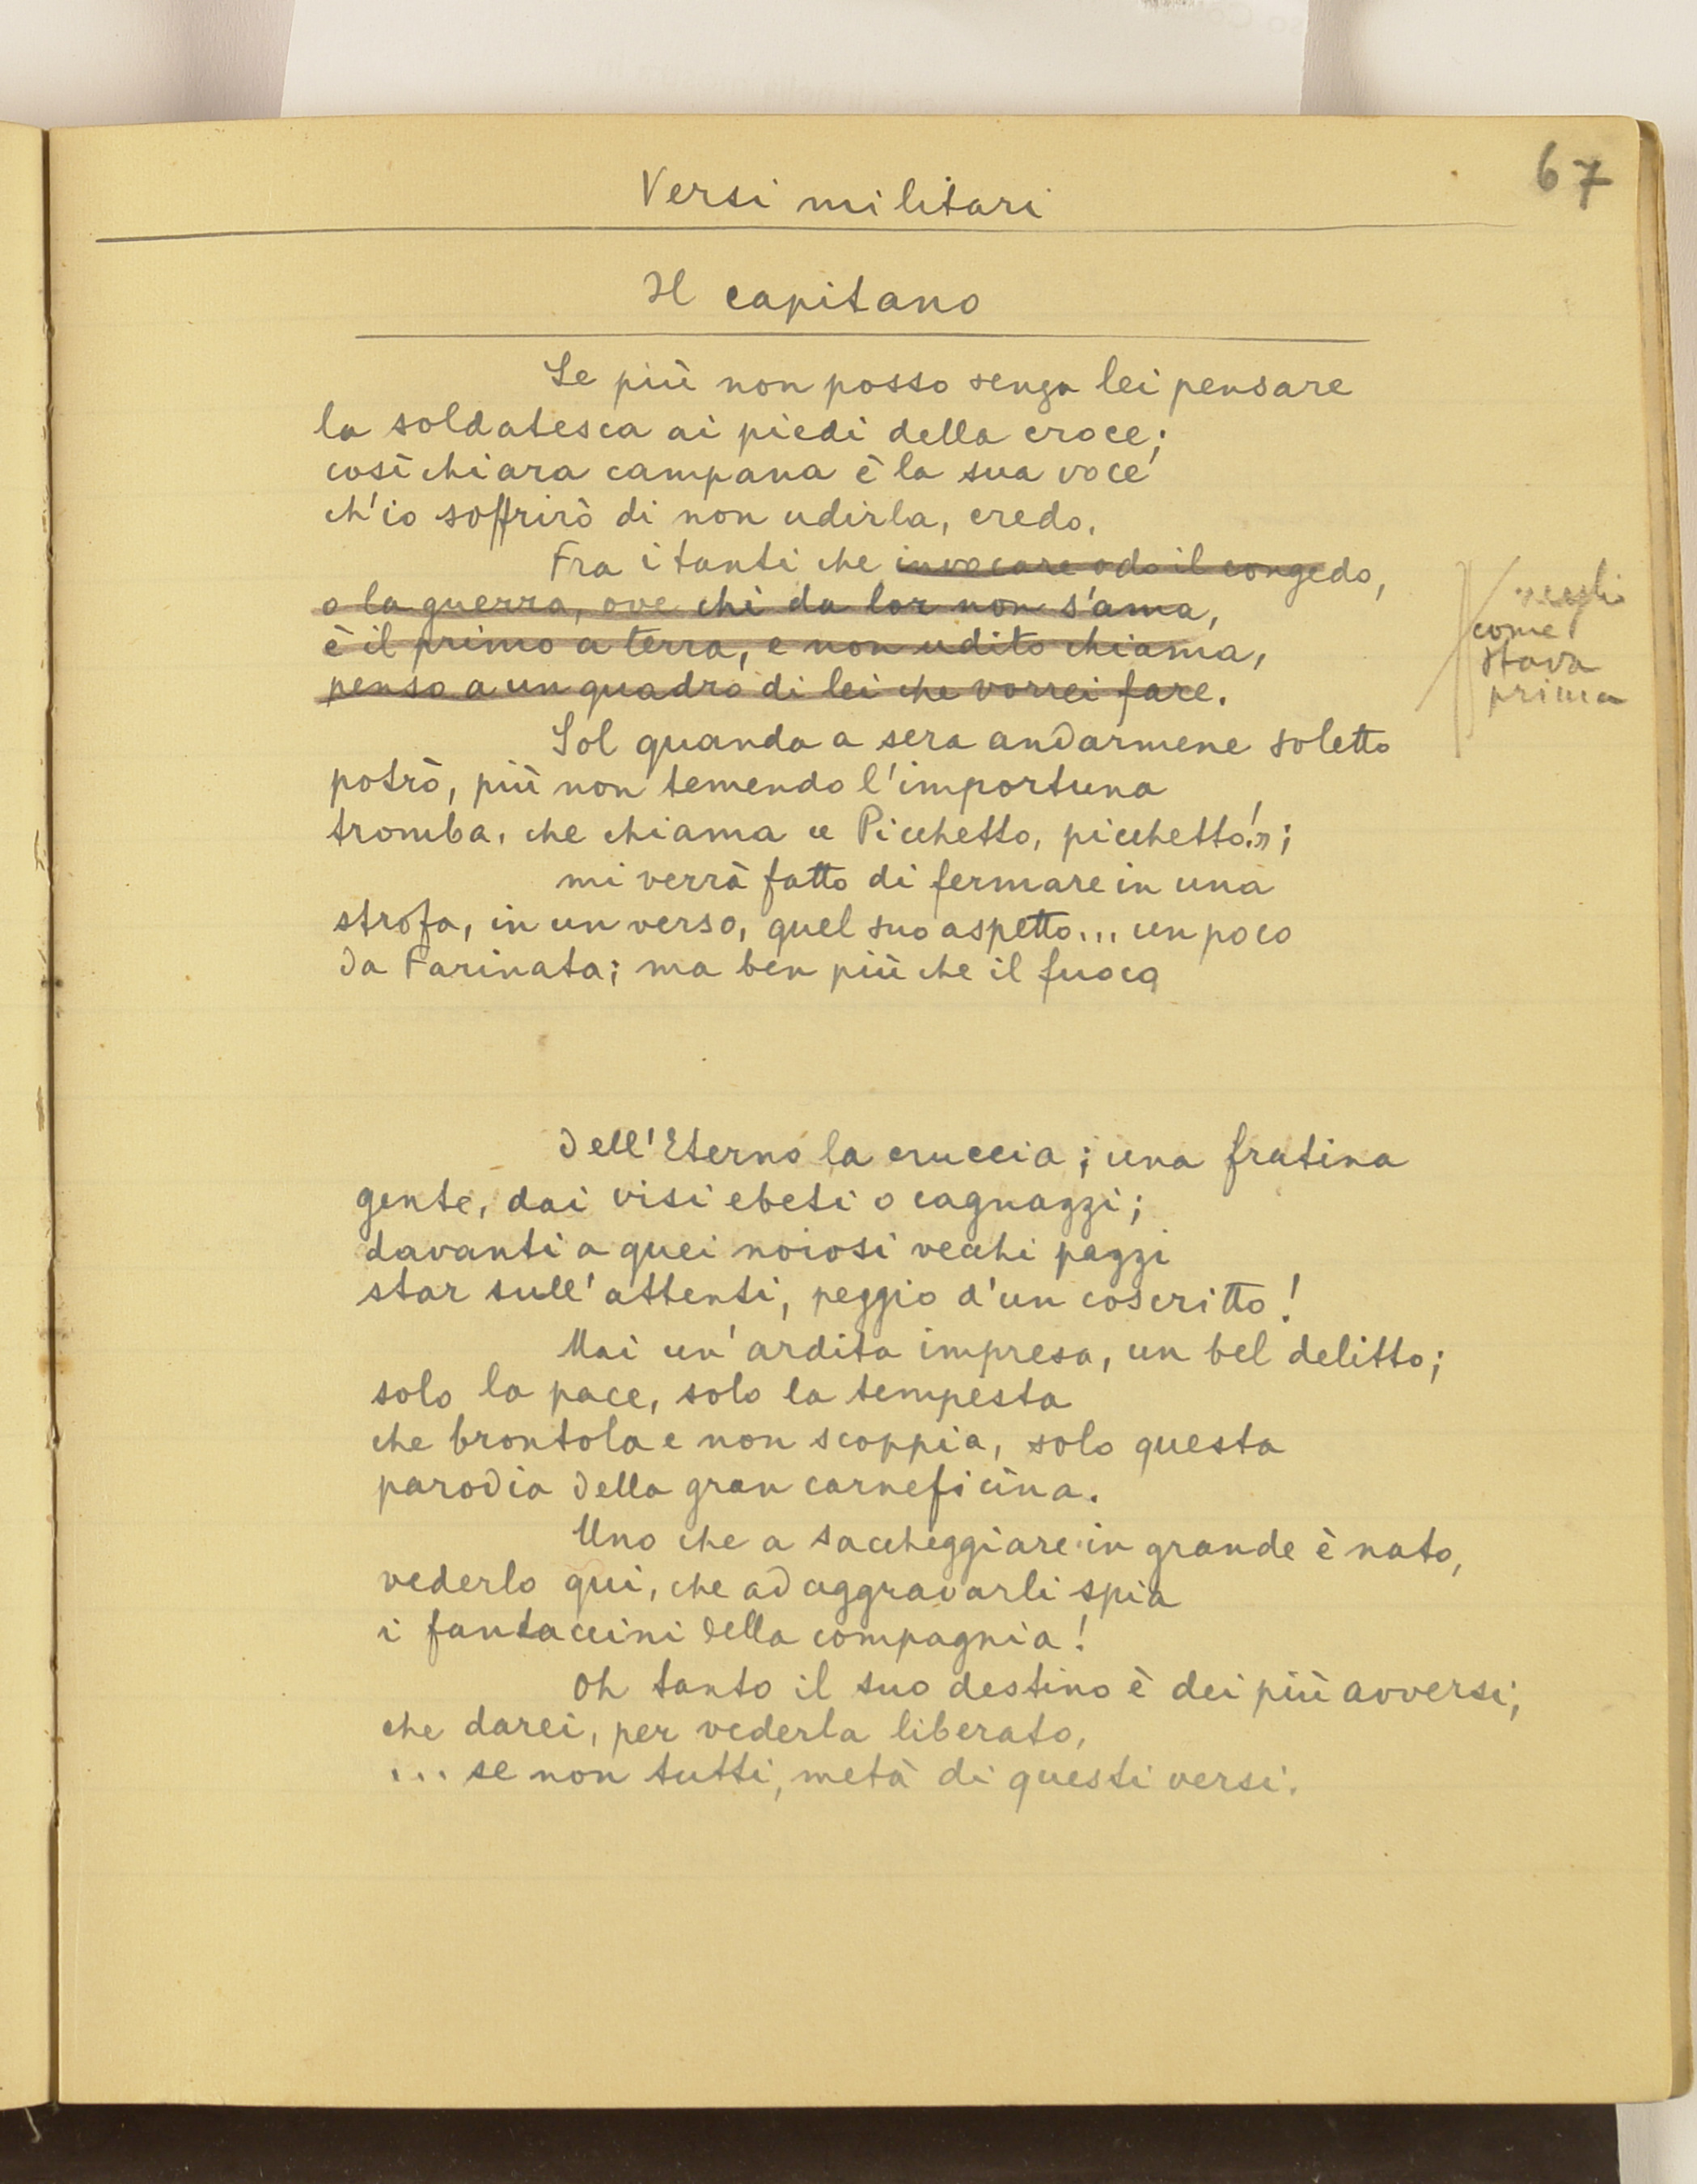 67
Versi militari
Il capitano
Se più non posso senza lei pensare
la soldatesca ai piedi della croce;
così chiara campana è la sua voce
ch'io soffrirò di non udirla, credo.
Fra i tanti che invocare odo il congedo,
o la guerra, ove chi da lor non s'ama,
è il primo a terra, e non udito chiama,
penso a un quadro di lei che vorrei fare.
meglio
come
stava
prima
Sol quando a sera andarmene soletto
potrò, più non temendo l'importuna
tromba, che chiama « Picchetto, picchetto!»;
mi verrà fatto di fermare in una
strofa, in un verso, quel suo aspetto... un poco
da Farinata; ma ben più che il fuoco
dell'Eterno la cruccia; una fratina
gente, dai visi ebeti o cagnazzi;
davanti a quei noiosi vecchi pazzi
star sull'attenti, peggio d'un coscritto!
Mai un'ardita impresa, un bel delitto;
solo la pace, solo la tempesta
che brontola e non scoppia, solo questa
parodia della gran carneficina.
Uno che a saccheggiare in grande è nato,
vederlo qui, che ad aggravarli spia
i fantaccini della compagnia!
Oh tanto il suo destino è dei più avversi;
che darei, per vederla liberato,
... se non tutti, metà di questi versi.